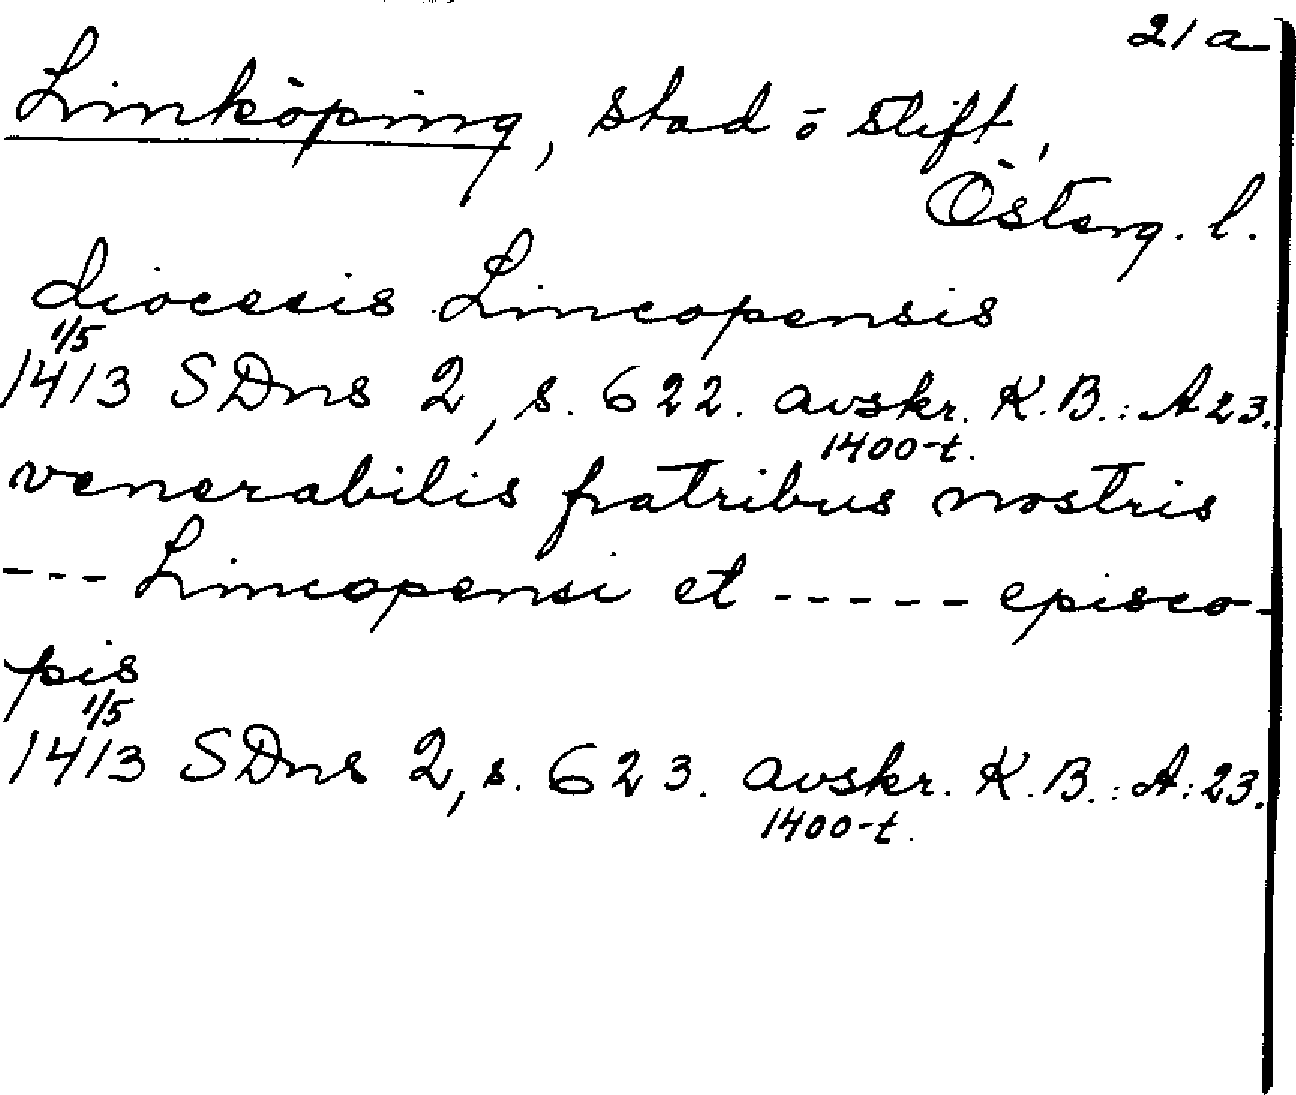 21a
Linköping, stad o stift,
Österg. l.
diocesis Lincopensis
1/5
1413 SDns 2, s. 622. avskr. K.B.: A 23.
1400-t.
venerabilis fratribus nostris
--- Lincopensi et ----- episco-
pis
1/5
1413 SDns 2, s. 623. avskr. K.B.: A: 23.
1400-t.